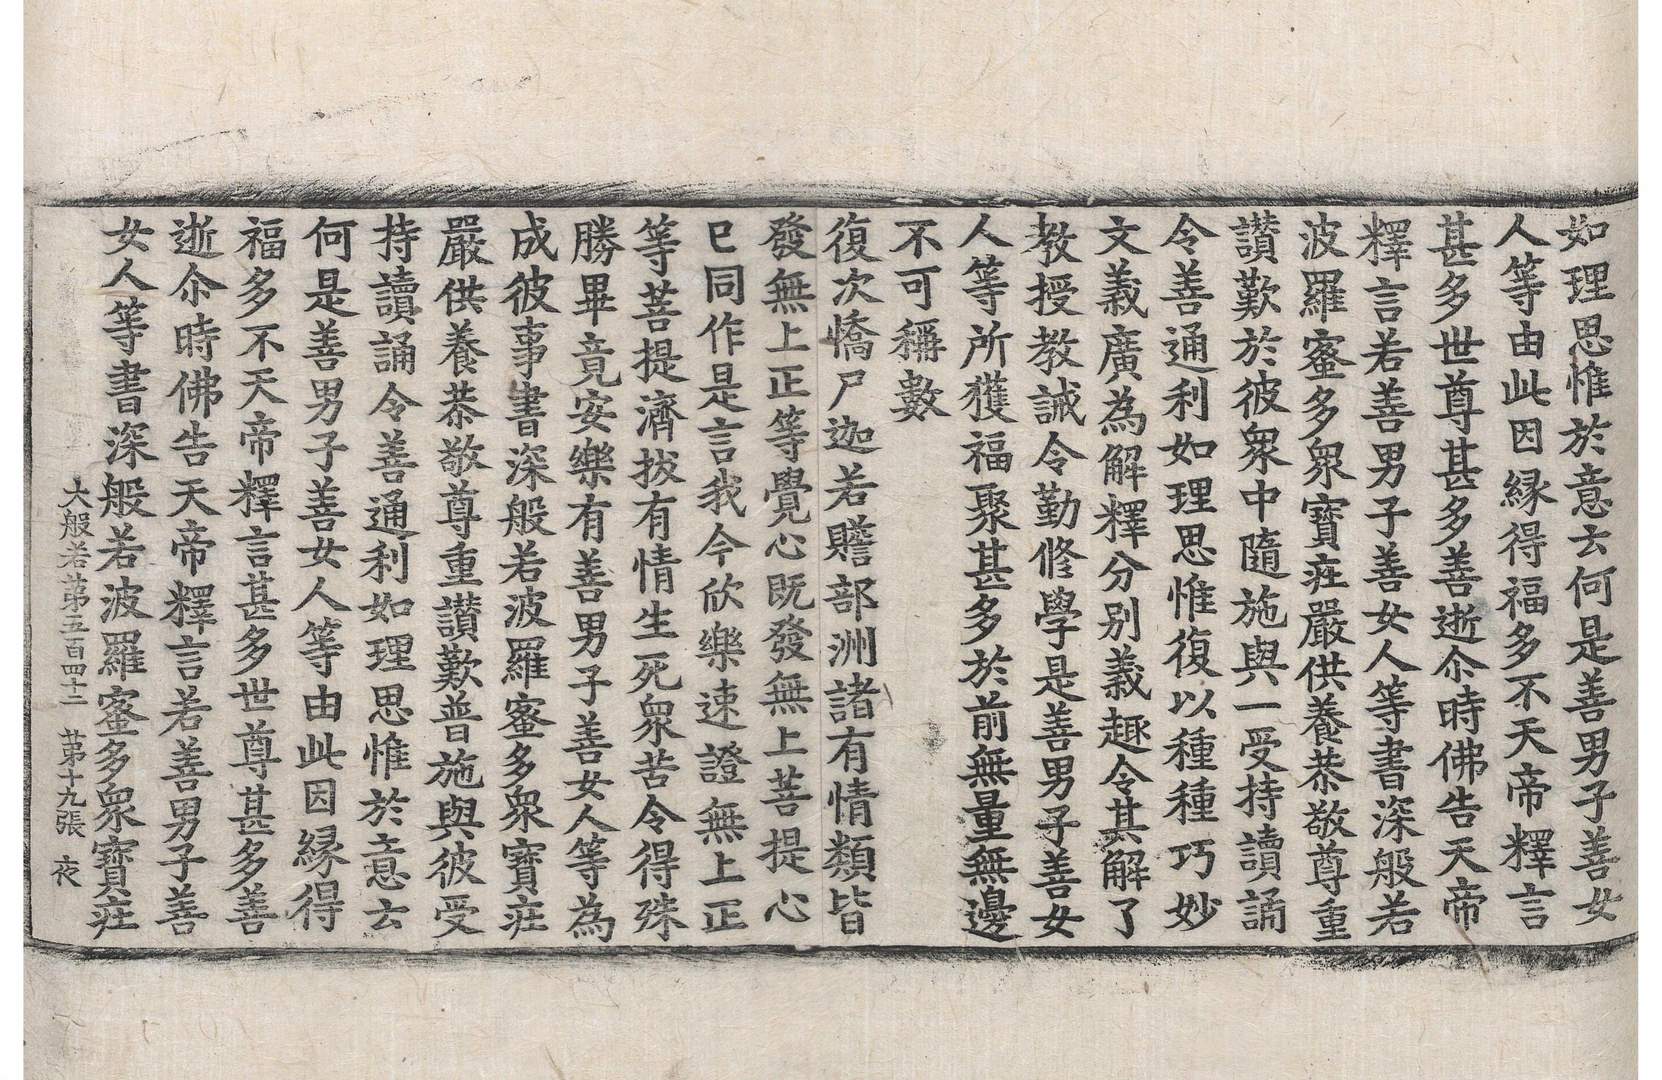 如理思惟於意云何是善男子善女
人等由此因縁得福多不天帝釋言
甚多世尊甚多善逝尒時佛告天帝
釋言若善男子善女人等書深般若
波羅蜜多衆寶莊嚴供養恭敬尊重
讃歎於彼衆中隨施與一受持讀誦
令善通利如理思惟復以種種巧妙
文義廣為解釋分別義趣令其解了
教授教誡令勤修學是善男子善女
人等所獲福聚甚多於前無量無邊
不可稱數
復次憍尸迦若贍部洲諸有情類皆
發無上正等覺心既發無上菩提心
已同作是言我今欣樂速證無上正
等菩提濟拔有情生死衆苦令得殊
勝畢竟安樂有善男子善女人等為
成彼事書深般若波羅蜜多衆寶莊
嚴供養恭敬尊重讃歎普施與彼受
持讀誦令善通利如理思惟於意云
何是善男子善女人等由此因縁得
福多不天帝釋言甚多世尊甚多善
逝尒時佛告天帝釋言若善男子善
女人等書深般若波羅蜜多衆寶莊
大般若苐五百四十二 苐十九張 夜